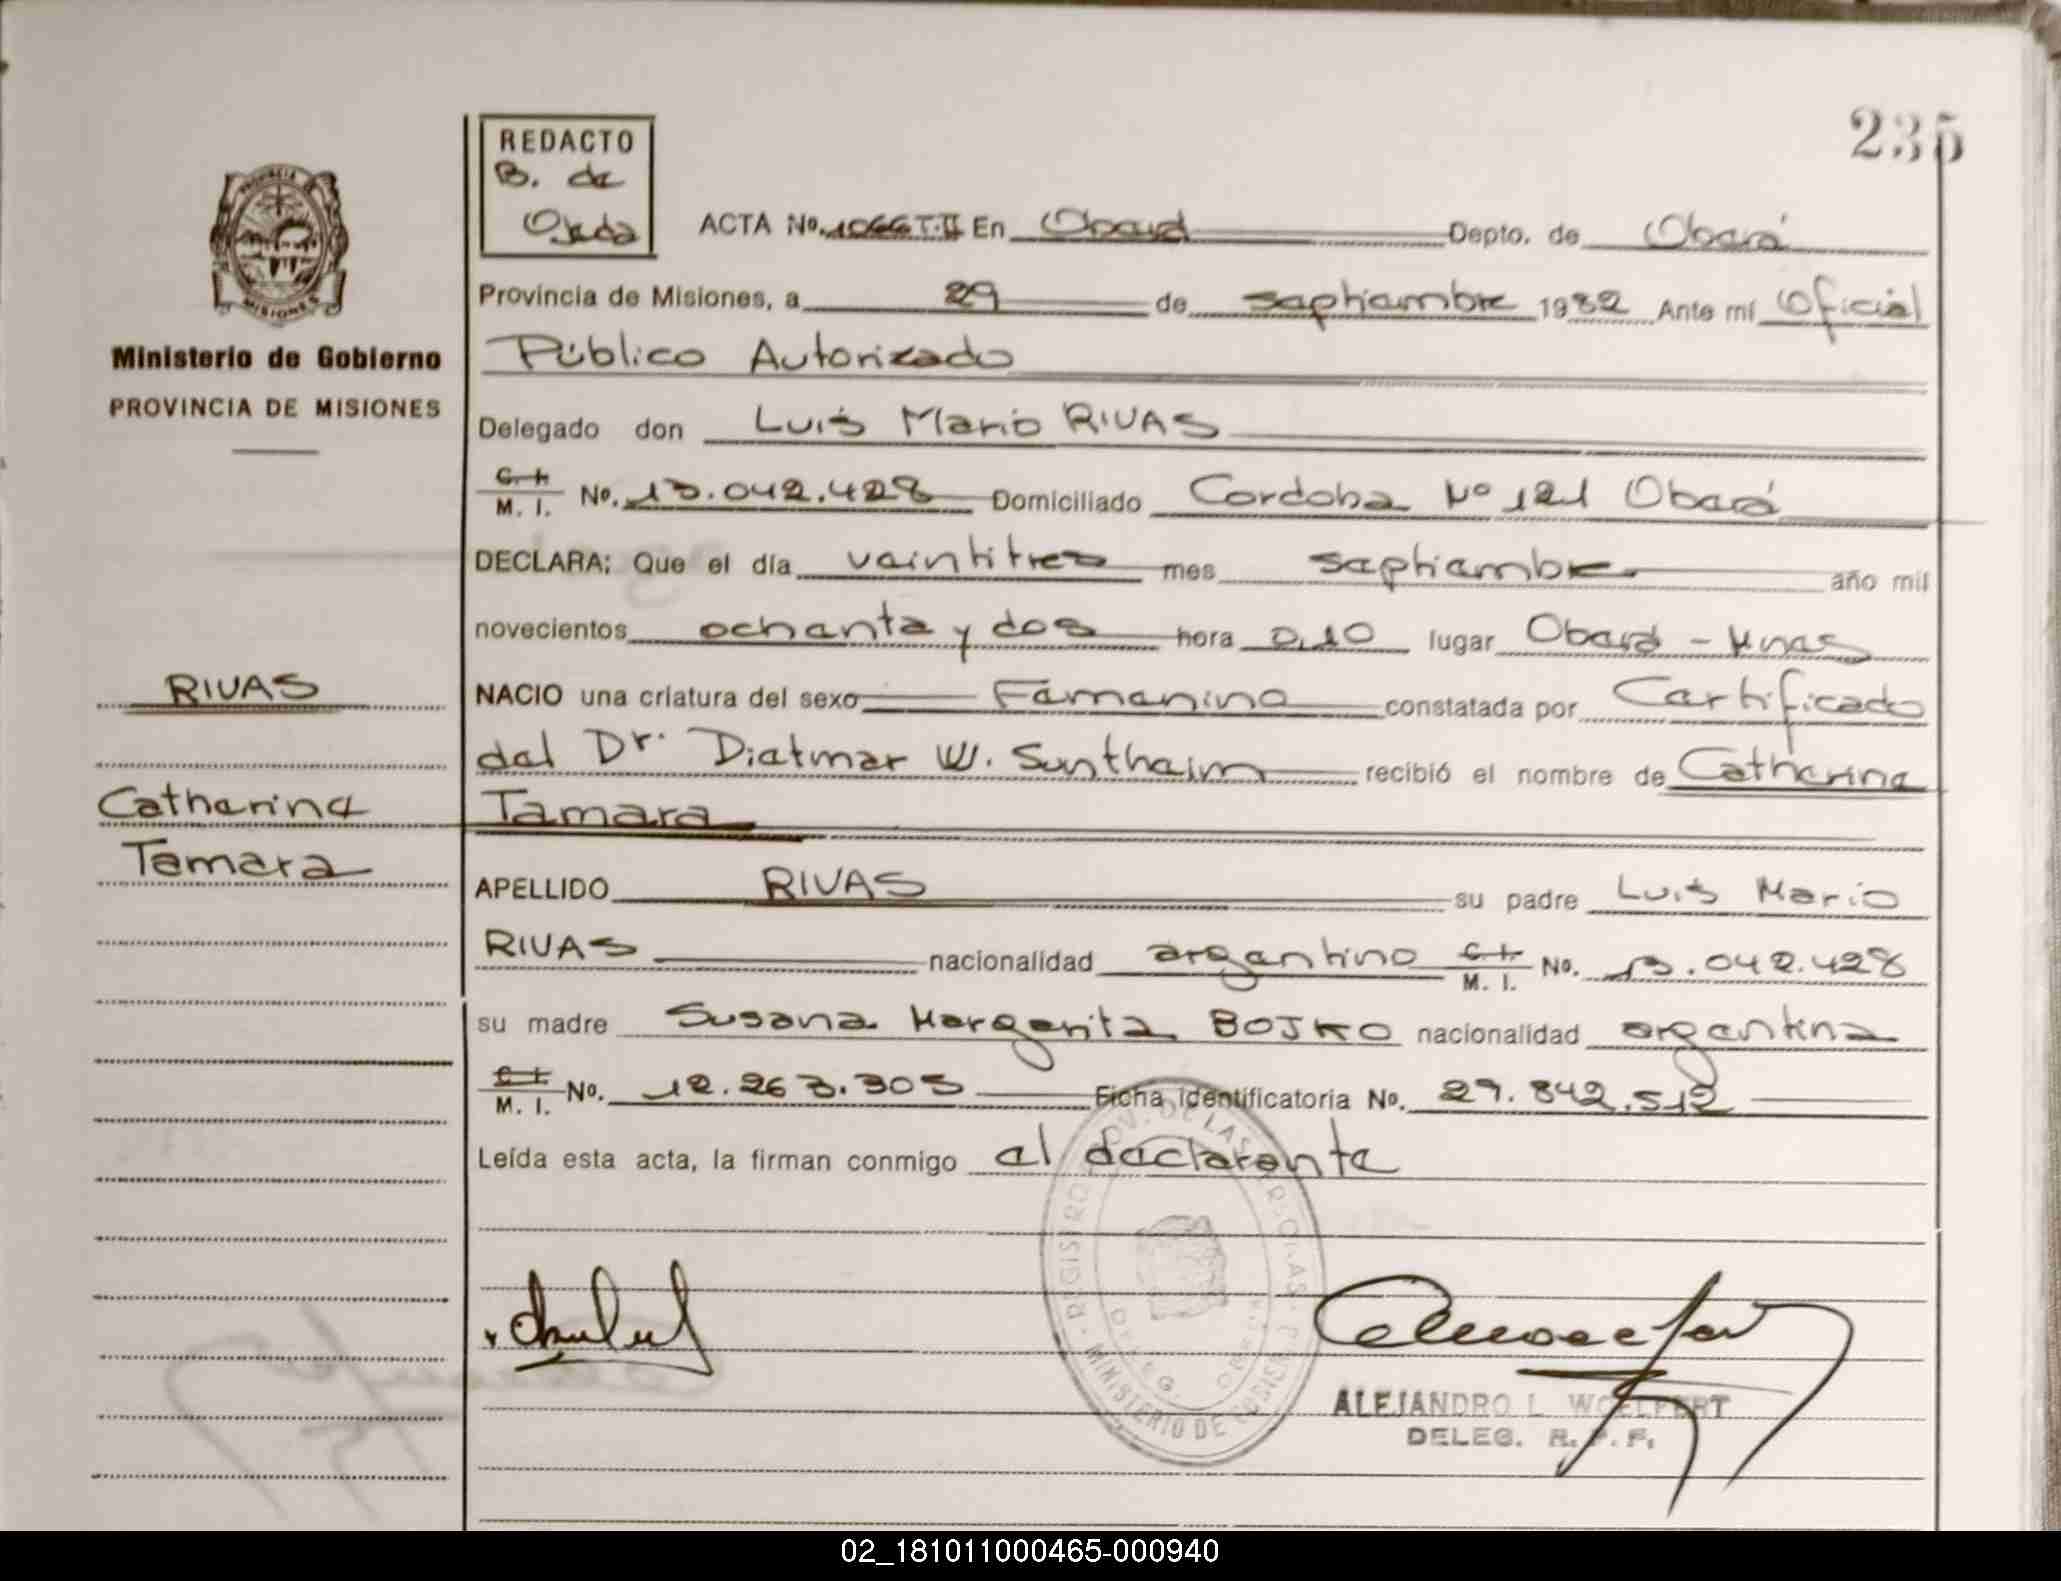 235
REDACTO
B. de
Ojeda
PROVINCIA DE
MISIONES
Ministerio de Gobierno
PROVINCIA DE MISIONES
ACTA No. 1066 T.II En Oberá Depto. de Oberá
Provincia de Misiones, a 29 de septiembre 1982 Ante mí Oficial
Público Autorizado
Delegado don Luis Mario RIVAS
C. I. M. I. No. 13.042.428 Domiciliado Cordoba Nº 121 Oberá
DECLARA: Que el día veintitres mes septiembre año mil
novecientos ochenta y dos hora 0,10 lugar Oberá - Mnes
NACIO una criatura del sexo Femenino constatada por Certificado
del Dr. Dietmar W. Suntheim recibió el nombre de Catherine
Tamara
APELLIDO RIVAS su padre Luis Mario
RIVAS nacionalidad argentino C. I. M. I. No. 13.042.428
su madre Susana Margarita BOJKO nacionalidad argentina
C. I. M. I. No. 12.263.305 Ficha identificatoria No. 29.842.512
Leída esta acta, la firman conmigo el declarante
RIVAS
Catherina
Tamara
REGISTRO PROV. DE LAS PERSONAS
MINISTERIO DE GOBIERNO
DELEG. OBERA
ALEJANDRO L. WOELFERT
DELEG. R. P. P.
02_181011000465-000940